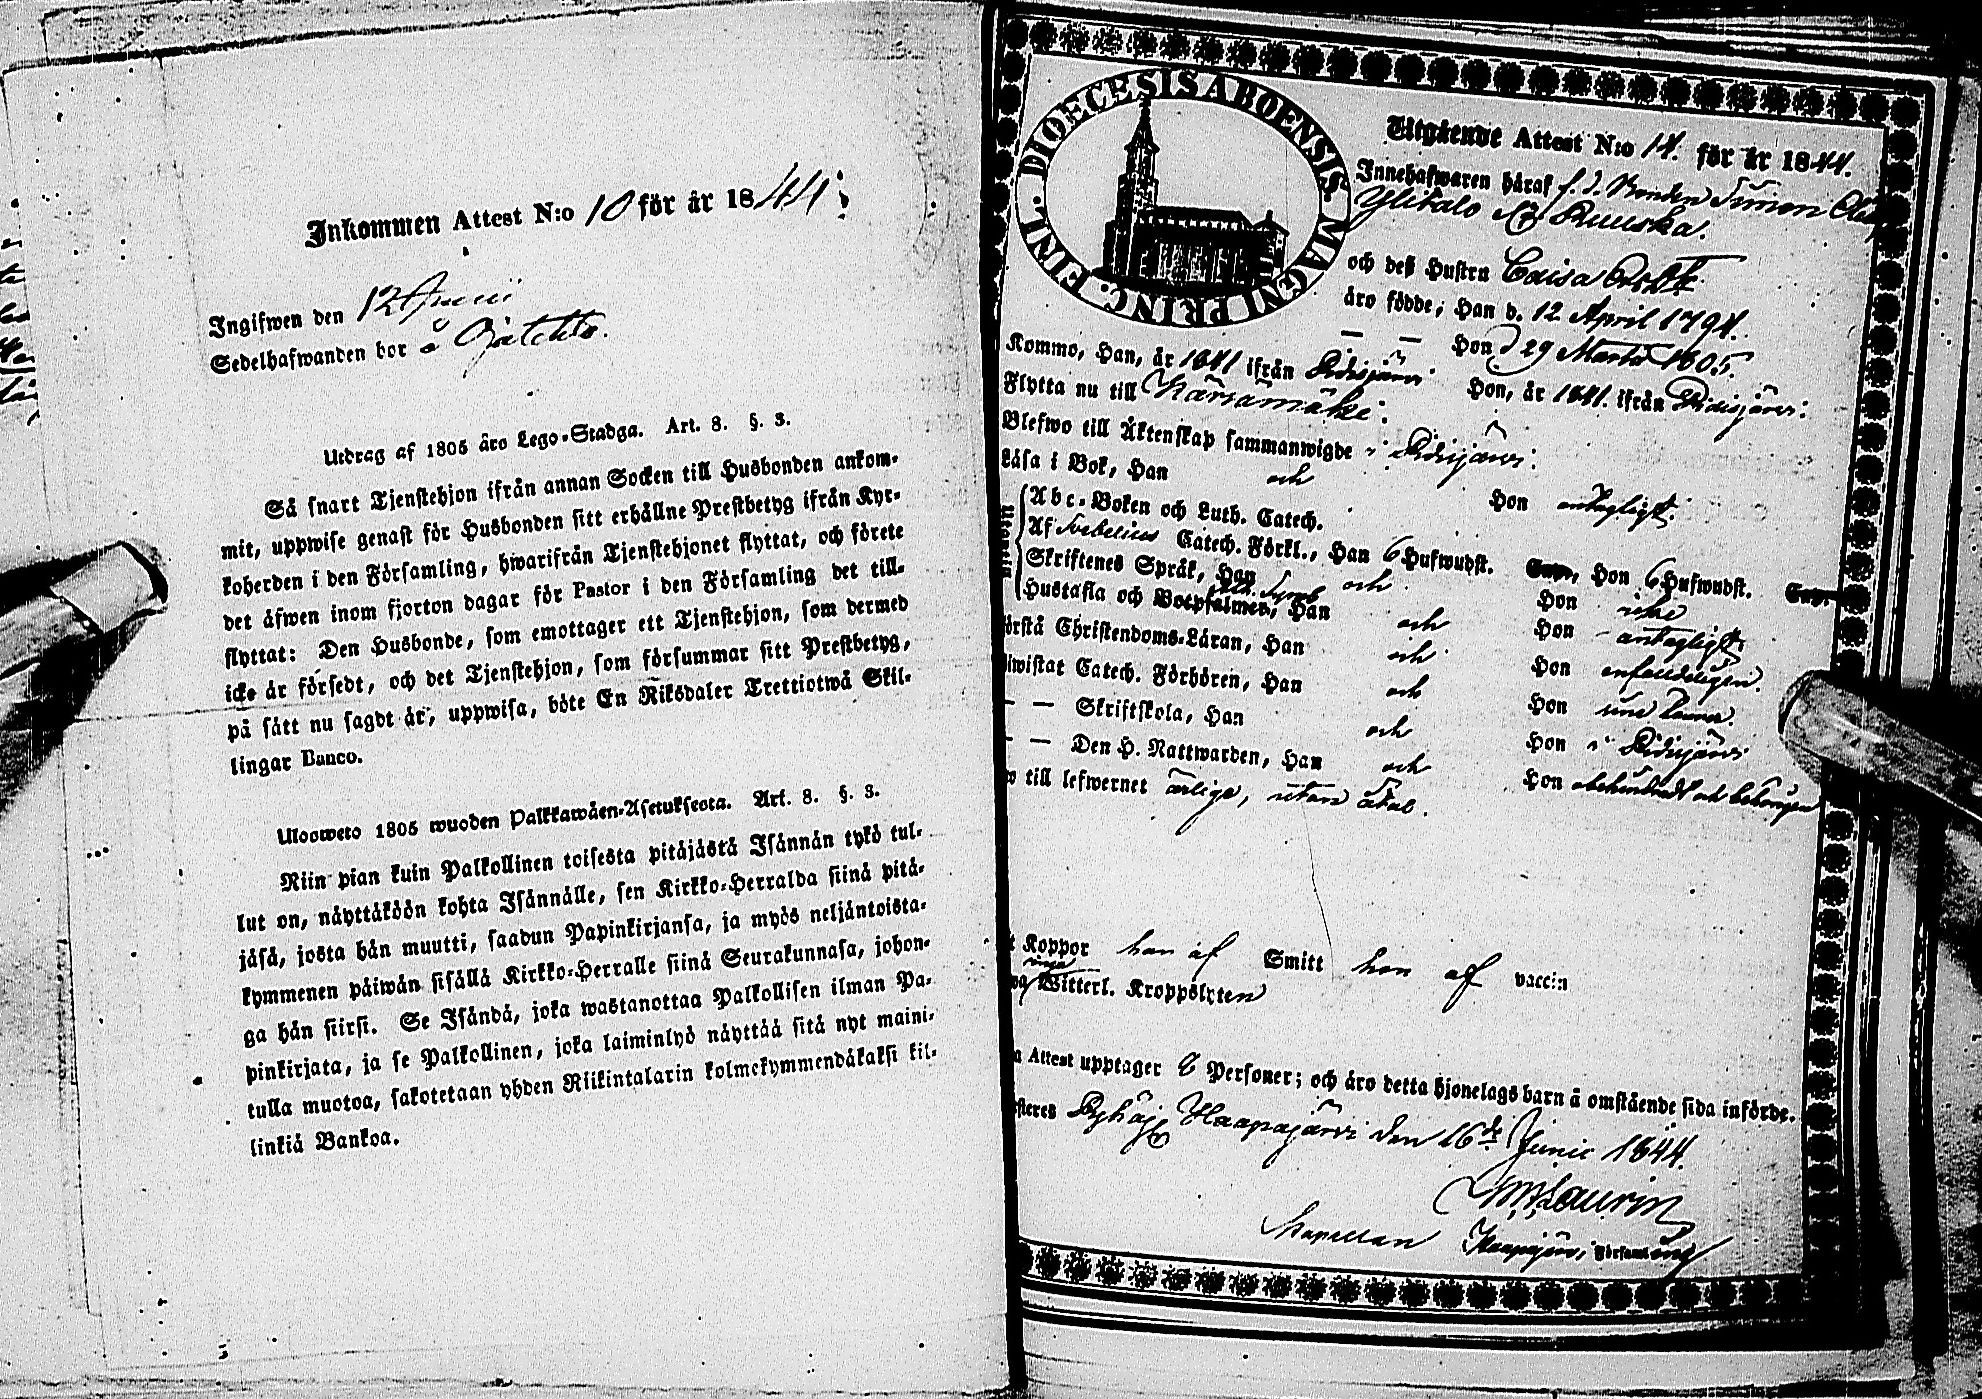 Inkommen Attest N:o 10 för år 1844.
Ingifwen den 12 Junii
Sedelhafwanden bor å
Utdrag af 1805 åro Lego-Stadga. Art. 8. §. 3.
Så snart Tjenstehjon ifrån annan Socken till Husbonden ankom-
mit, uppwise genast för Husbonden sitt erhållne Prestbetyg ifrån Kyr-
koherden i den Församling, hwarifrån Tjenstehjonet flyttat, och förete
det äfwen inom fjorton dagar för Pastor i den Församling det till-
flyttat: Den Husbonde, som emottager ett Tjenstehjon, som dermed
icke är försedt, och det Tjenstehjon, som försummar sitt Prestbetyg,
på sätt nu sagdt är, uppwisa, böte En Riksdaler Trettiotwå Skil-
lingar Banco.
Ulosweto 1805 wuoden Palkkawåen-Asetuksesta. Art. 8. §. 3.
Niin pian kuin Palkollinen toisesta pitäjästä Isännän tykö tul-
lut on, näyttäköön kohta Isännälle, sen Kirkko-Herralda siinä pitä-
jäsä, josta hän muutti, saadun Papinkirjansa, ja myös neljäntoista-
kymmenen päiwän sisällä Kirkko-Herralle siinä Seurakunnasa, johon-
ga hän siirsi. Se Isändä, joka wastanottaa Palkollisen ilman Pa-
pinkirjata, ja se Palkollinen, joka laiminlyö näyttää sitä nyt maini-
tulla muotoa, sakotetaan yhden Riikintalarin kolmekymmendäkaksi kil-
linkiä Bankoa.
DIOECESIS ABOENSIS. MAGNI PRINC. FINL.
Utgående Attest N:o 14. för år 1844.
Innehafwaren häraf f. d. Bonden Simon
Ylitalo
och deß Hustru Caisa
äro födde; Han d. 12 April 1794.
— — Hon d 29 Martii 1805.
Kommo, Han, år 1841 ifrån Pidisjärvi Hon, år 1841. ifrån Pidisjärvi:
Flytta nu till Kärsämäki.
Blefwo till Äktenskap sammanwigde i Pidisjärvi.
Läsa i Bok, Han och Hon antagligt.
Abc-Boken och Luth. Catech.
Af Svebelius Catech. Förkl., Han 6 Hufwudst. Cap., Hon 6 Hufwudst. Cap.
Skriftenes Språk, Han och Hon icke
Hustafla och Botpsalmer, Han Symb och Hon antagligt
Förstå Christendoms-Läran, Han och Hon enfaldeligen.
Biwistat Catech. Förhören, Han och Hon
— — Skriftskola, Han och Hon i Pidisjärvi
— — Den H. Nattwarden, Han och Hon obehindradt och
till lefwernet ärlige, utan åtal.
Koppor han af Smitt hon af vaccin
inga Witterl. Kroppslyten
Attest upptager 8 Personer; och äro detta hjonelags barn å omstående sida införde.
Pyhäj: Haapajärvi den 16de Junii 1844.
Laurin
Kapellan Haapajärvi Församling